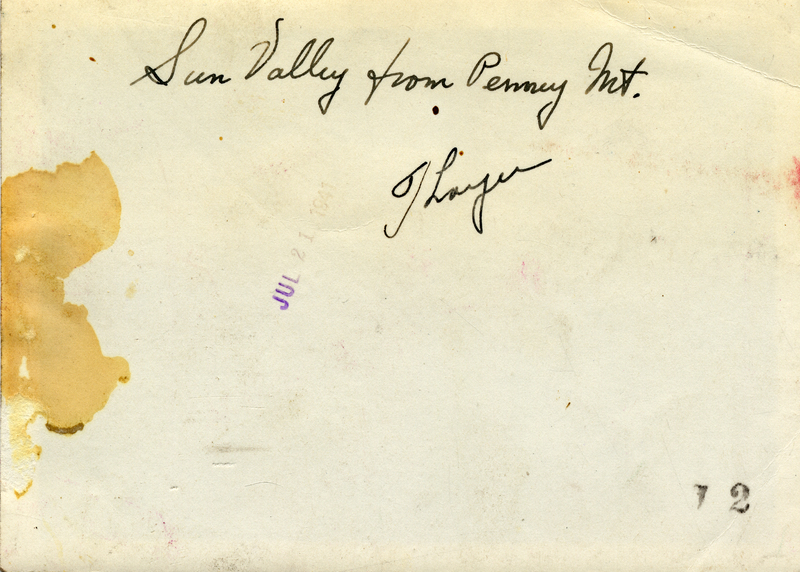 Sun Valley from Penney Mt.
JUL 21 1941
2